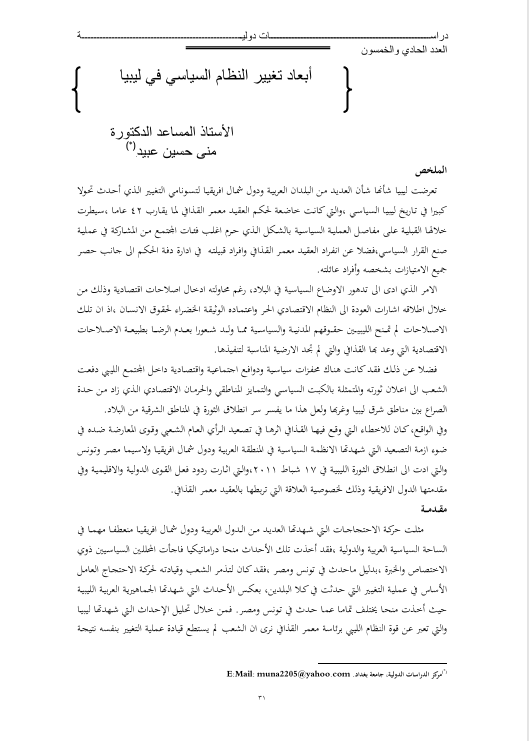 دراســـــــات دوليـــــــة
العدد الحادي والخمسون
أبعاد تغيير النظام السياسي في ليبيا
الأستاذ المساعد الدكتورة
منى حسين عبيد(*)
الملخص
تعرضت ليبيا شأنها شأن العديد من البلدان العربية ودول شمال افريقيا لتسونامي التغيير الذي أحدث تحولا
كبيرا في تاريخ ليبيا السياسي ،والتي كانت خاضعة لحكم العقيد معمر القذافي لما يقارب ٤٢ عاما ،سيطرت
خلالها القبلية على مفاصل العملية السياسية بالشكل الذي حرم اغلب فئات المجتمع من المشاركة في عملية
صنع القرار السياسي،فضلا عن انفراد العقيد معمر القذافي وافراد قبيلته في ادارة دفة الحكم الى جانب حصر
جميع الامتيازات بشخصه وأفراد عائلته.
الامر الذي ادى الى تدهور الاوضاع السياسية في البلاد، رغم محاولته ادخال اصلاحات اقتصادية وذلك من
خلال اطلاقه اشارات العودة الى النظام الاقتصادي الحر واعتماده الوثيقة الخضراء لحقوق الانسان ،اذ ان تلك
الاصلاحات لم تمنح الليبيين حقوقهم المدنية والسياسية مما ولد شعورا بعدم الرضا بطبيعة الاصلاحات
الاقتصادية التي وعد بها القذافي والتي لم تجد الارضية المناسبة لتنفيذها.
فضلا عن ذلك فقد كانت هناك محفزات سياسية ودوافع اجتماعية واقتصادية داخل المجتمع الليبي دفعت
الشعب الى اعلان ثورته والمتمثلة بالكبت السياسي والتمايز المناطقي والحرمان الاقتصادي الذي زاد من حدة
الصراع بين مناطق شرق ليبيا وغربها ولعل هذا ما يفسر سر انطلاق الثورة في المناطق الشرقية من البلاد.
وفي الواقع، كان للاخطاء التي وقع فيها القذافي اثرها في تصعيد الرأي العام الشعبي وقوى المعارضة ضده في
ضوء ازمة التصعيد التي شهدتها الانظمة السياسية في المنطقة العربية ودول شمال افريقيا ولاسيما مصر وتونس
والتي ادت الى انطلاق الثورة الليبية في ١٧ شباط ٢٠١١،والتي اثارت ردود فعل القوى الدولية والاقليمية وفي
مقدمتها الدول الافريقية وذلك لخصوصية العلاقة التي تربطها بالعقيد معمر القذافي.
مقدمـة
مثلت حركة الاحتجاجات التي شهدتها العديد من الدول العربية ودول شمال افريقيا منعطفا مهما في
الساحة السياسية العربية والدولية ،فقد أخذت تلك الأحداث منحا دراماتيكيا فاجأت المحللين السياسيين ذوي
الاختصاص والخبرة ،بدليل ماحدث في تونس ومصر ،فقد كان لتذمر الشعب وقيادته لحركة الاحتجاج العامل
الأساس في عملية التغيير التي حدثت في كلا البلدين، بعكس الأحداث التي شهدتها الجماهيرية العربية الليبية
حيث أخذت منحا يختلف تماما عما حدث في تونس ومصر. فمن خلال تحليل الإحداث التي شهدتها ليبيا
والتي تعبر عن قوة النظام الليبي برئاسة معمر القذافي نرى ان الشعب لم يستطع قيادة عملية التغيير بنفسه نتيجة
(*)مركز الدراسات الدولية، جامعة بغداد. E:Mail: muna2205@yahoo.com
٣١